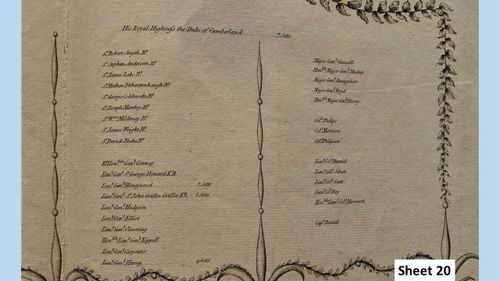 His Royal Highness the Duke of Cumberland 7 Setts
Sr. Robert Smyth Bt.
Sr. Stephen Anderson Bt.
Sr. James Lake Bt.
Sr. Mathew Fetherstonhaugh Bt.
Sr. George Colebrooke Bt.
Sr. Joseph Mawbey Bt.
Sr. Wm. Mildmay Bt.
Sr. James Wright Bt.
Sr. Patrick Blake Bt.
Rt. Honble. Genl. Conway
Lieut. Genl. Sr. George Howard K.B.
Lieut. Genl. Honywood 2 Setts
Lieut. Genl. Sr. John Griffin Griffin K.B.
Lieut. Genl. Hodgson
Lieut. Genl. Elliot
Lieut. Genl. Clavering
Honble. Lieut. Genl. Keppell
Lieut. Genl. Carpenter
Lieut. Genl.
Major Genl. Gansell
Honble. Major Genl. Mackay
Major Genl.
Major Genl. Boyd
Honble. Major Genl.
Coll. Philips
Coll. Morrison
Coll.
Lieut. Coll.
Lieut. Coll.
Lieut. Coll. Scott
Lieut. Coll. Roy
Honble. Lieut. Coll.
Capt.
Sheet 20